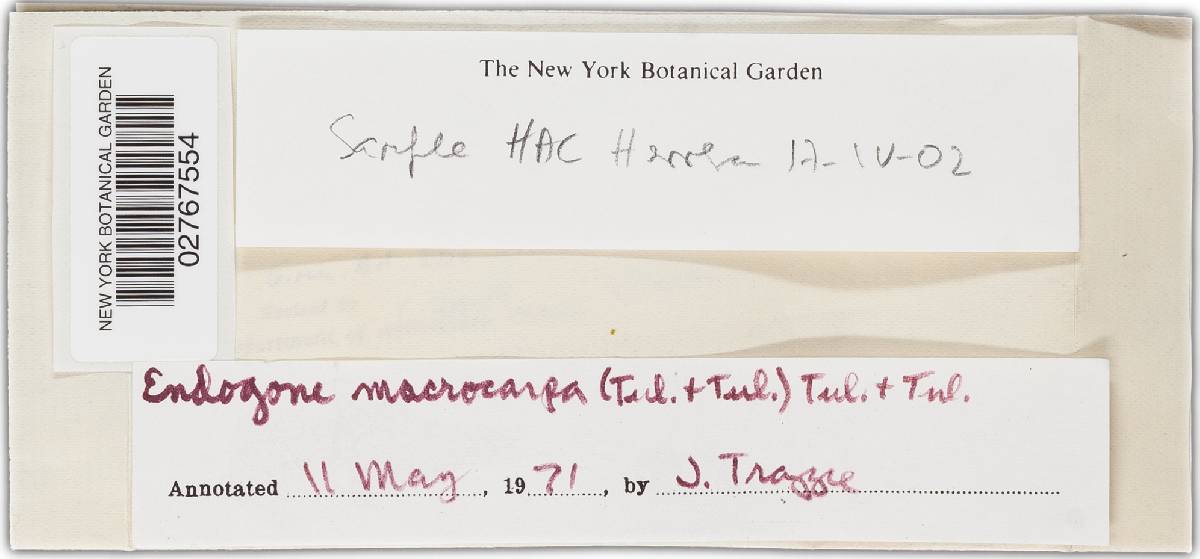 NEW YORK BOTANICAL GARDEN
02767554
The New York Botanical Garden
Sample HAC Herrera 17-IV-02
Endogone macrocarpa (Tul. + Tul.) Tul. + Tul.
Annotated 11 May, 1971, by J. Trappe